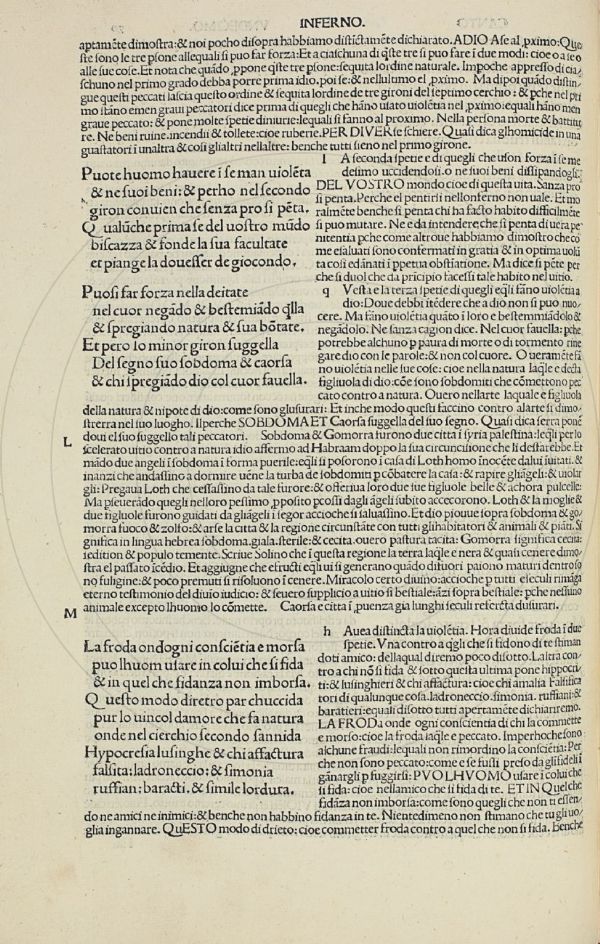 INFERNO.
aptamẽte dimostra:& noi pocho disopra habbiamo distĩctamẽte dichiarato. ADIO A se al ꝓximo: Que
ste sono le tre psone allequali si puo far forza: Et a ciaschuna di q̃ste tre si puo fare ĩ due modi: cioe o a se o
alle sue cose. Et nota che quãdo ꝓpone q̃ste tre psone: seq̃ta lordine naturale. Impoche appresso di cia/
schuno nel primo grado debba porre prima idio, poi se: & nellultimo el ꝓximo. Ma dipoi quãdo distin/
gue questi peccati lascia questo ordine & sequita lordine de tre gironi del septimo cerchio: & pche nel pri
mo stãno emen graui peccatori dice prima di quegli che hãno usato uiolẽtia nel ꝓximo: equali hãno men
graue peccato: & pone molte spetie diniurie: lequali si fanno al proximo. Nella persona morte & battitu
re. Ne beni ruine, incendii & tollete: cioe ruberie. PER DIVERse schiere. Quasi dica glhomicide in una
guastatori ĩ unaltra & cosi glialtri nellaltre: benche tutti sieno nel primo girone.
Puote huomo hauere ĩ se man uiolẽta
& ne suoi beni: & perho nel secondo
giron conuien che senza pro si pẽta.
Qualũche priua se del uostro mũdo
biscazza & fonde la sua facultate
et piange la douesser de giocondo.
l A seconda spetie e di quegli che uson forza ĩ se me
desimo uccidendosi. o ne suoi beni dissipandogli:
DEL VOSTRO mondo cioe di questa uita. Sanza pro
si penta. Perche el pentirsi nellonferno non uale. Et mo
ralmẽte benche si penta chi ha facto habito difficilmẽte
si puo mutare. Ne e da intendere, che si penta di uera pe
nitentia pche come altroue habbiamo dimostro che co/
me esaluati sono confermati in gratia & in optima uolũ
ta cosi edãnati ĩ ppetua obstiatione. Ma dice si pẽte per
che si duol che da pricipio facessi tale habito nel uitio.
Puossi far forza nella deitate
nel cuor negãdo & bestemiãdo q̃lla
& spregiando natura & sua bõtate.
Et pero lo minor giron suggella
Del segno suo sobdoma & caorsa
& chi spregiãdo dio col cuor fauella.
q Vesta e la terza spetie di quegli eq̃li fãno uiolẽtia a
dio: Doue debbi ĩtẽdere che a dio non si puo nuo/
cere. Ma fãno uiolẽtia quãto ĩ loro e bestemmiãdolo &
negãdolo. Ne sanza cagion dice. Nel cuor fauella: pche
potrebbe alchuno p paura di morte o di tormento rine
gare dio con le parole: & non col cuore. O ueramẽte fã
no uiolẽtia nelle sue cose: cioe nella natura laq̃le e decta
figliuola di dio: cõe sono sobdomiti che cõmettono pec
cato contro a natura. Ouero nellarte laquale e figliuola
della natura & nipote di dio: come sono glusurari: Et inche modo questi faccino contro alarte si dimo/
sterra nel suo luogho. Ilperche SOBDOMA ET Caorsa suggella del suo segno. Quasi dica serra ponẽ
doui el suo suggello tali peccatori. Sobdoma & Gomorra furono due citta ĩ syria palestina: leq̃li per lo
L
scelerato uitio contro a natura idio affermo ad Habraam doppo la sua circuncisione che li desfarebbe. Et
mãdo due angeli ĩ sobdoma ĩ forma puerile: eq̃li si posorono ĩ casa di Loth homo ĩnocẽte dalui ĩuitati. &
inanzi che andassino a dormire uẽne la turba de sobdomiti p cõbatere la casa: & rapire gliãgeli: & uiolar
gli: Pregaua Loth che cessassino da tale furore: & offeriua loro due sue figliuole belle & achora pulcelle:
Ma pseuerãdo quegli nelloro pessimo, pposito pcossi dagli ãgeli subito accecorono. Loth & la moglie &
due figliuole furono guidati da gliãgeli ĩ segor acciohe si saluassino. Et dio piouue sopra sobdoma & go/
morra fuoco & zolfo: & arse la citta & la regione circunstãte con tutti glihabitatori & animali & piãti. Si
gnifica in lingua hebrea sobdoma, gi.sa. sterile: & cecita. ouero pastura tacita: Gomorra significa cecita:
seditione & populo temente. Scriue Solino che ĩ questa regione la terra laq̃le e nera & quasi cenere dimo/
stra el passato ĩcẽdio. Et aggiugne che efructi eq̃li ui si generano quãdo difuori paiono maturi dentro so
no fuligine: & poco premuti si risoluono ĩ cenere. Miracolo certo diuino: accioche p tutti e seculi rimãga
eterno testimonio del diuio iudicio: & seuero supplicio a uitio si bestiale: ãzi sopra bestiale: pche nessuno
animale excepto lhuomo lo cõmette. Caorsa e citta ĩ ꝓuenza gia lunghi seculi referta dusurari.
M
La froda ondogni consciẽtia e morsa
puo lhuom usare in colui che si fida
& in quel che fidanza non imborsa.
Questo modo diretro par chuccida
pur lo uincol damore che fa natura
onde nel cierchio secondo sannida
Hypocresia lusinghe & chi affactura
falsita: ladroneccio: & simonia
ruffian: baracti. & simile lordura.
h Auea distincta la uiolẽtia. Hora diuide froda ĩ due
spetie. Vna contro a q̃gli che si fidono di te stiman
doti amico: dellaqual diremo poco disotto. Laltra con/
tro a chi nõ si fida & sotto questa ultima pone hippocri/
ti: & lusinghieri & chi affactura: cioe chi amalia. Falsifica
tori di qualunque cosa. ladroneccio. simonia. ruffiani: &
baratieri: equali disotto tutti apertamẽte dichiariremo.
LA FRODa onde ogni conscientia di chi la commette
e morso: cioe la froda laq̃le e peccato. Imperhoche sono
alchune fraudi: lequali non rimordino la consciẽtia: Per
che non sono peccato: come e se fusti preso da gl̃ifideli ĩ
gãnargli p fuggirsi: PVO LHVOMO usare ĩ colui che
si fida: cioe nellamico che si fida di te. ET IN Quel che
fidãza non imborsa: come sono quegli che non ti essen/
do ne amici ne inimici: & benche non habbino fidanza in te. Nientedimeno non stimano che tu gli uo/
glia ingannare. QuESTO modo di drieto: cioe commetter froda contro a quel che non si fida. Benche